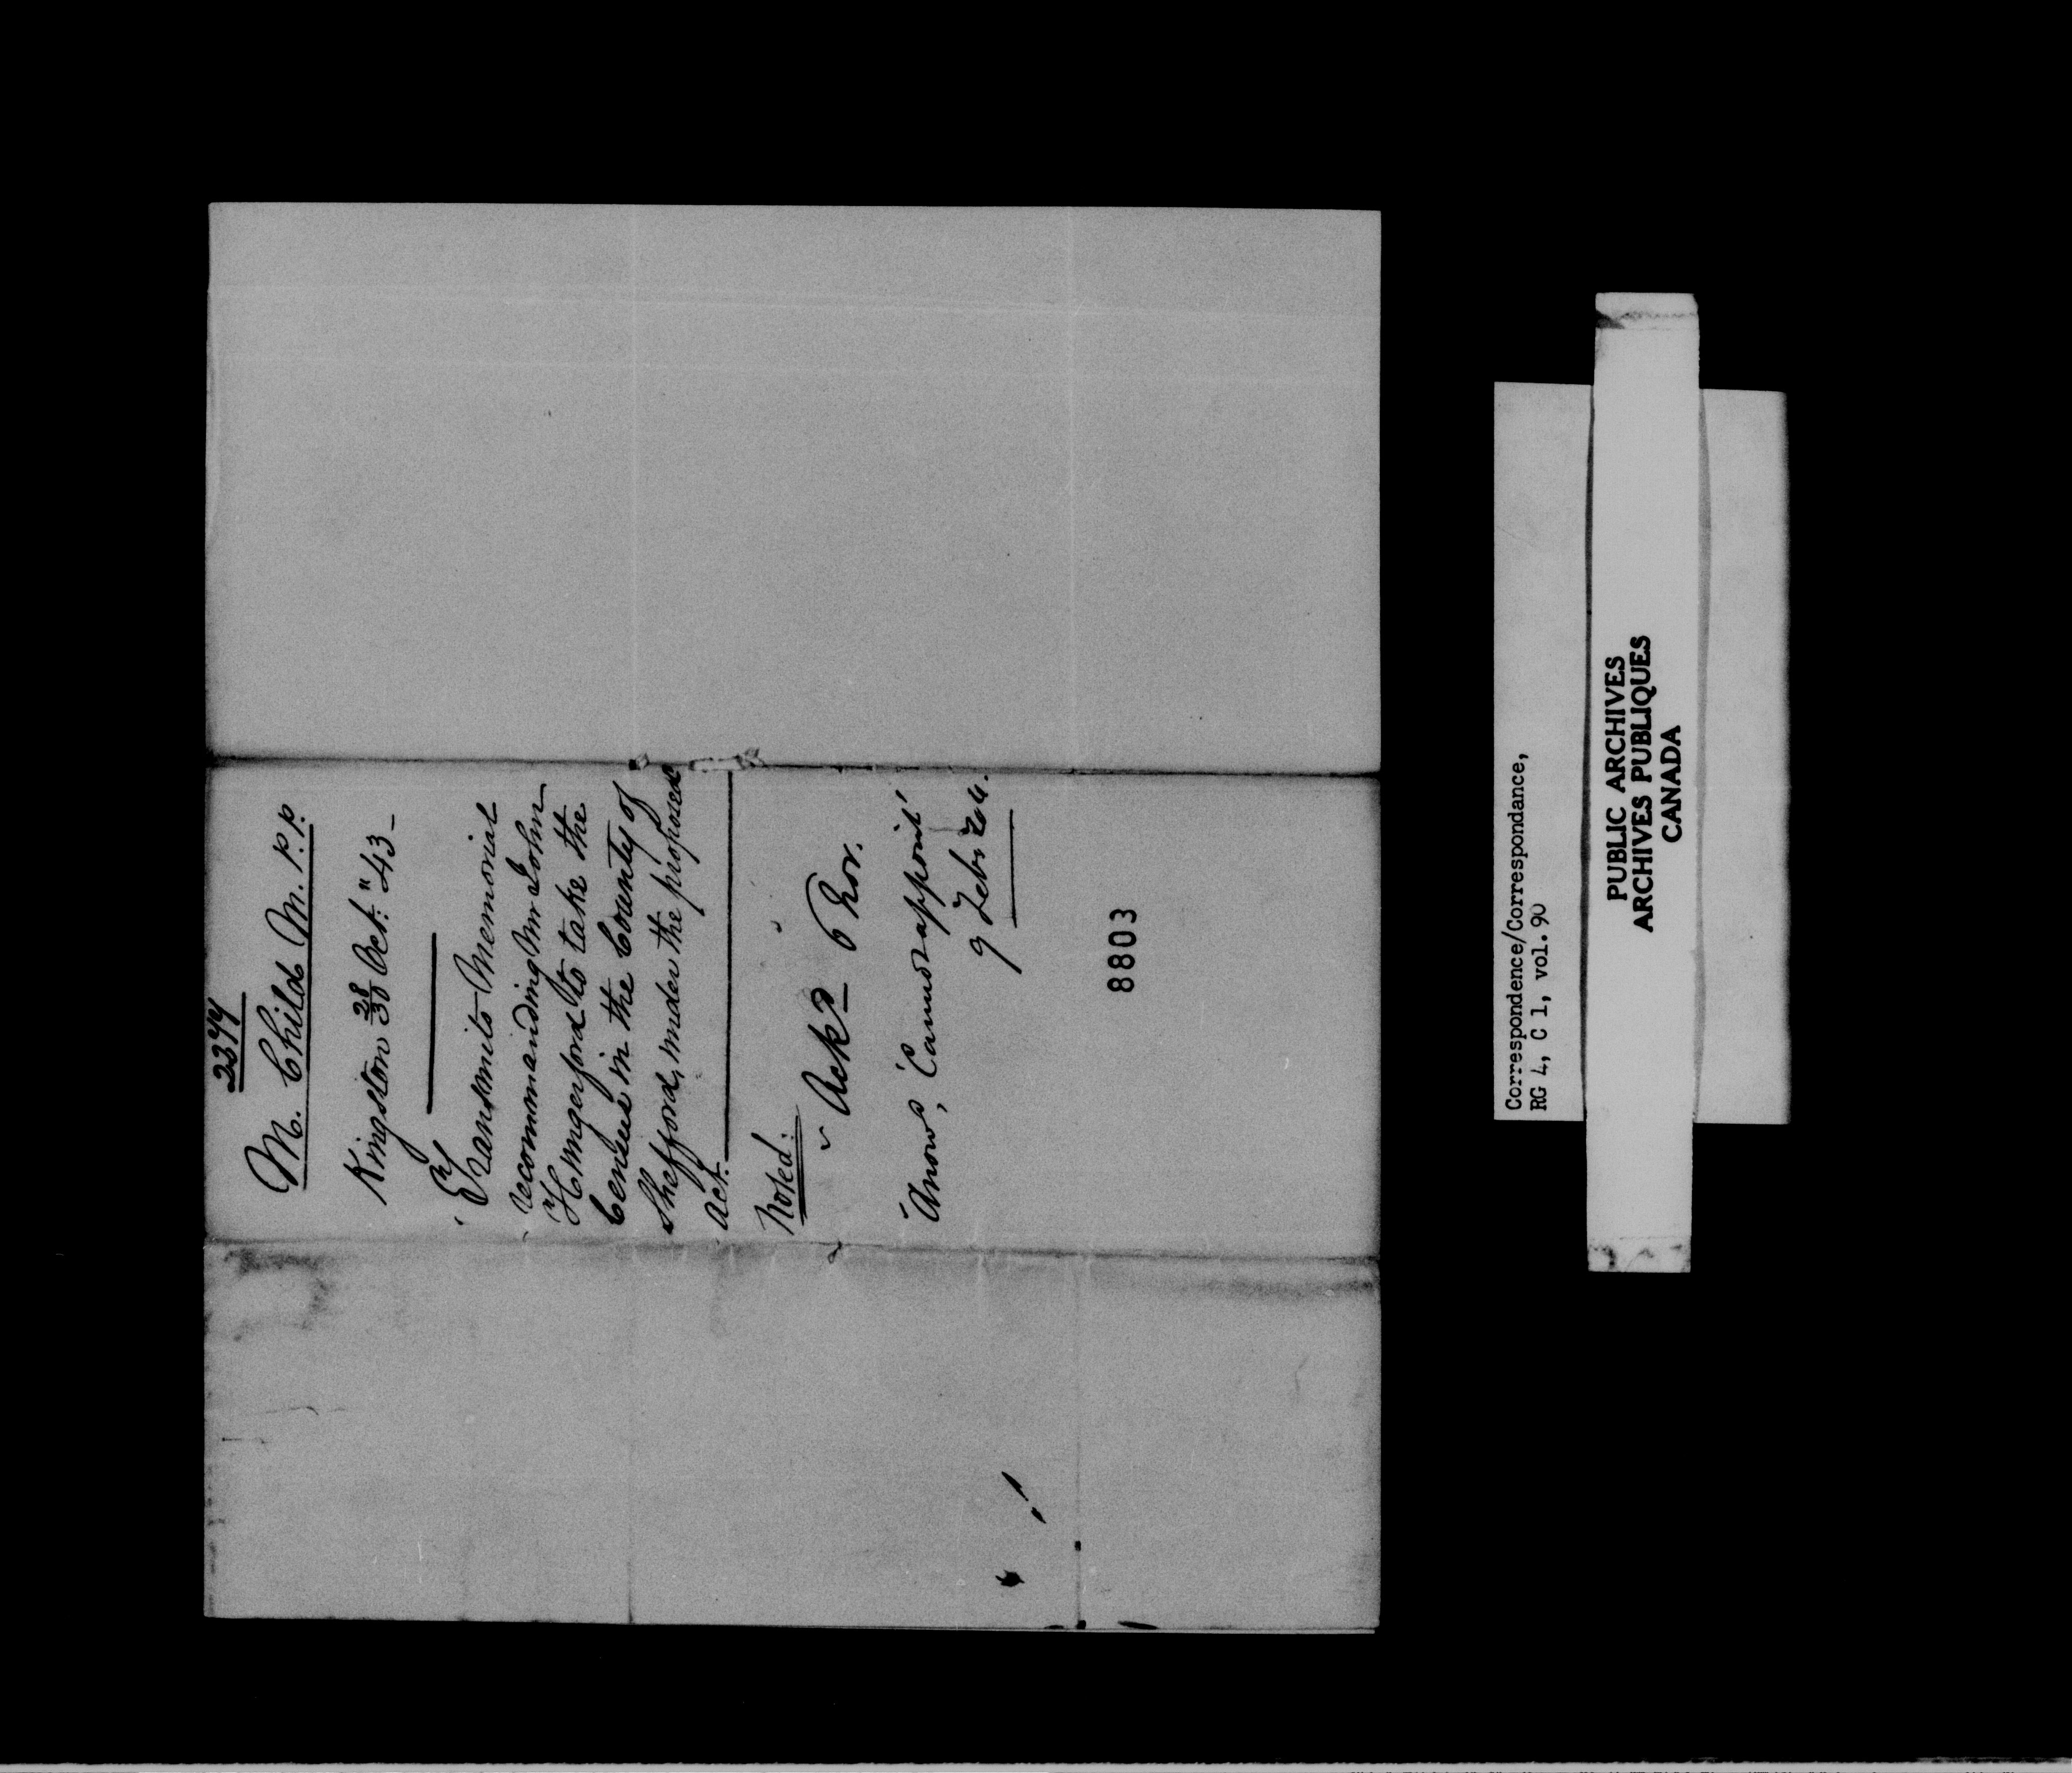 2377
M. Child M.P.P.
Kingston 28/30 Oct: "43 -
Transmits Memorial
recommanding Mr John
Hungerford to take the
Census in the County of
Shefford, under the proposed
Act.
Noted.
Ackd 6 Nov.
Ansd, Cannot appoint
9 Feb
8803
Correspondence/Correspondance,
RG 4, C 1, vol. 90
PUBLIC ARCHIVES
ARCHIVES PUBLIQUES
CANADA